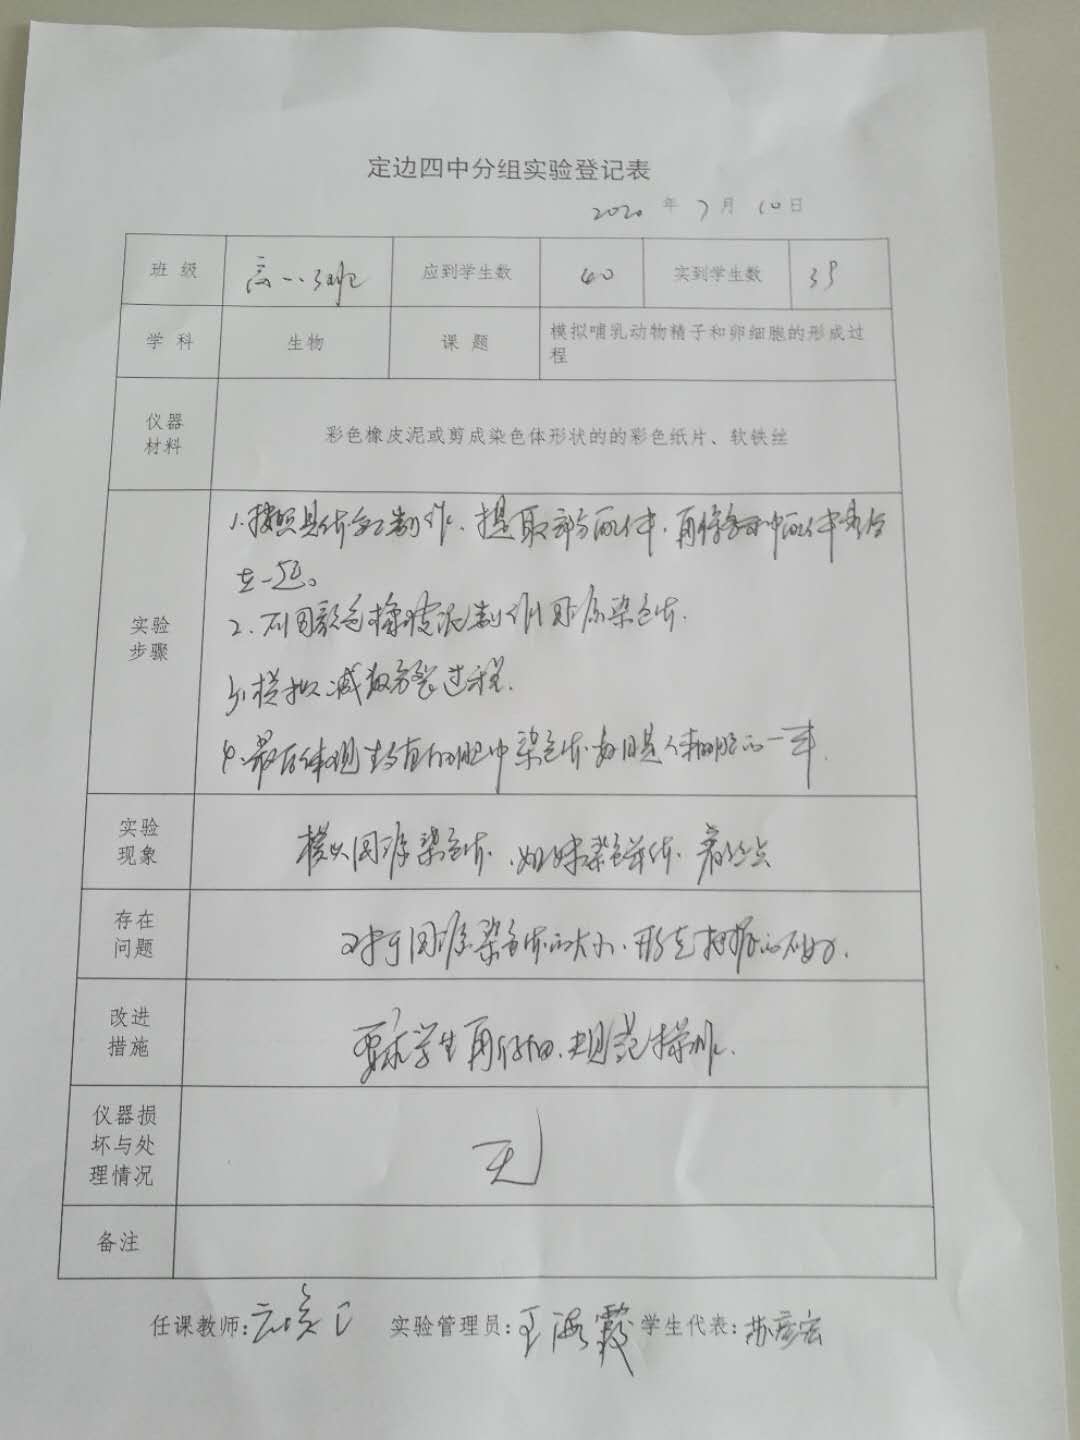 定边四中分组实验登记表
2020 年 7 月 10 日
班 级 高一.3班 应到学生数 40 实到学生数 39
学 科 生物 课 题 模拟哺乳动物精子和卵细胞的形成过
程
仪器
材料
彩色橡皮泥或剪成染色体形状的的彩色纸片、软铁丝
实验
步骤
1.按照具体 制作. 提取部分 再将
在一起。
2.不同颜色橡皮泥制作同源染色体.
3.模拟减数分裂过程.
4.最后体现生殖细胞中染色体数目是体细胞的一半.
实验
现象
模拟同源染色体.姐妹染色单体.着丝点
存在
问题
对于同源染色体的大小.形态把握的不好.
改进
措施
要求学生再仔细.规范操作.
仪器损
坏与处
理情况
无
备注
任课教师: 实验管理员:王海霞 学生代表:苏彦宏